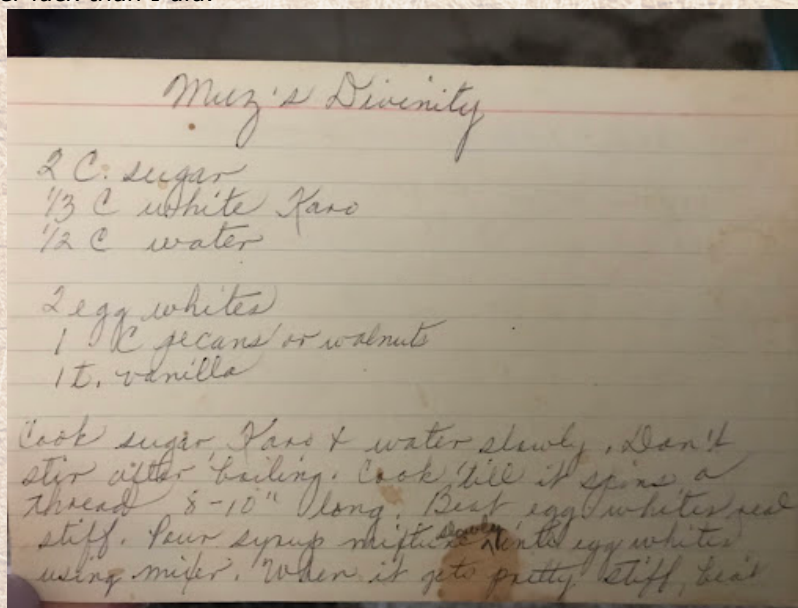 Muz's Divinity
2 C. sugar
1/3 C white Karo
1/2 C water
2 egg whites
1 C pecans or walnuts
1 t. vanilla
Cook sugar, Karo & water slowly. Don't
stir after boiling. Cook 'till it spins a
thread 8-10" long. Beat egg whites real
stiff. Pour syrup mixture slowly into egg whites
using mixer. When it gets pretty stiff, beat